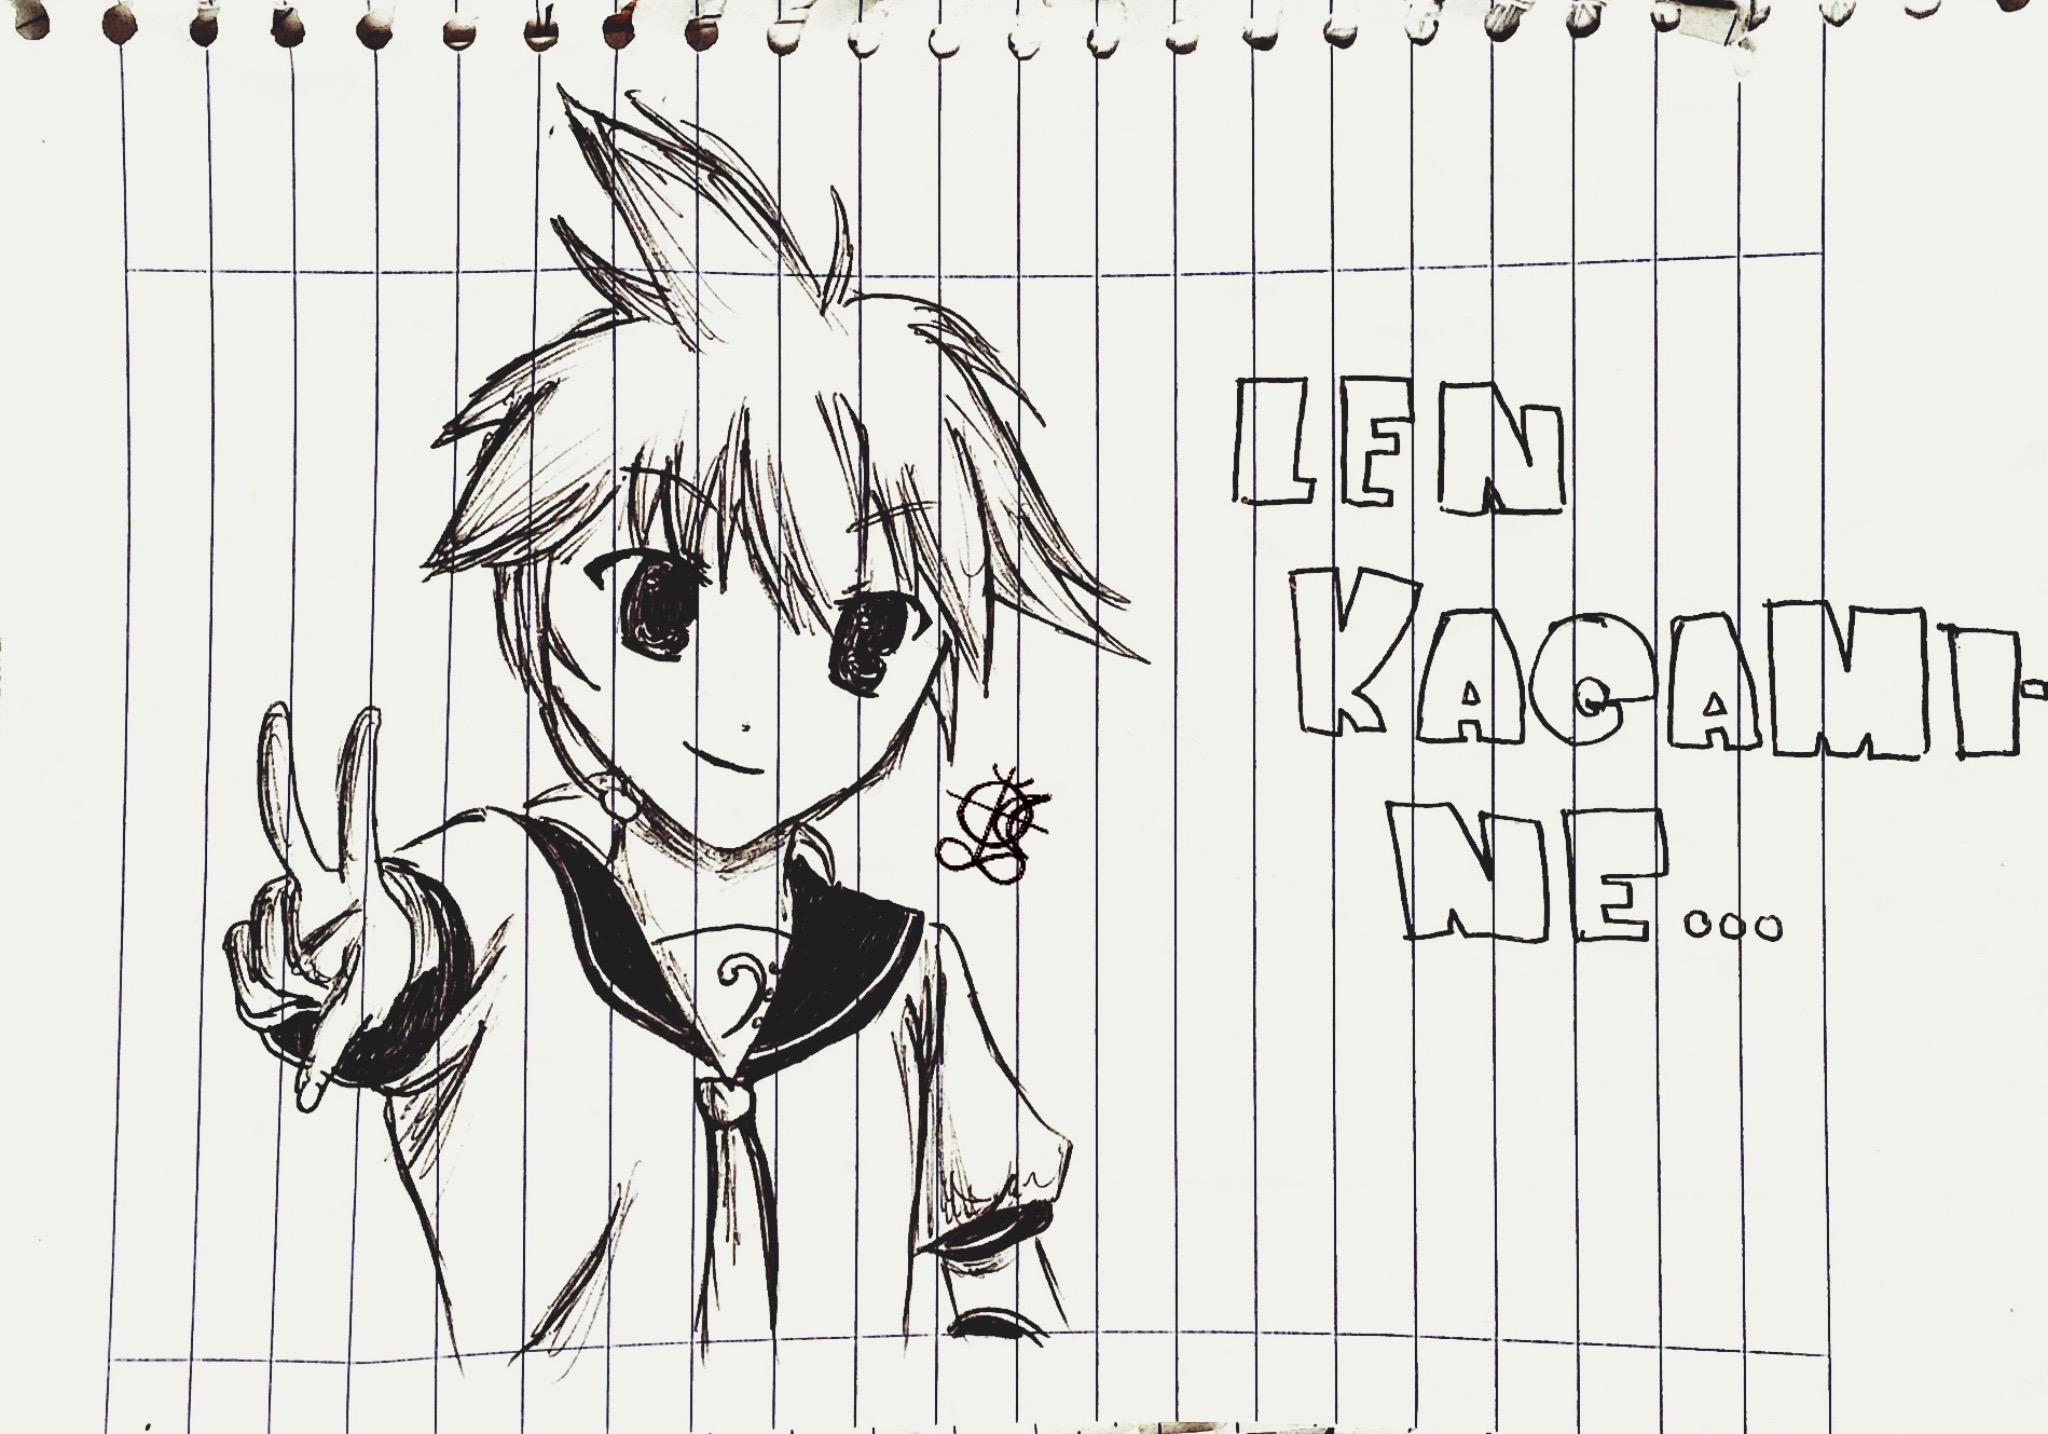 LEN
KAGAMI-
NE...